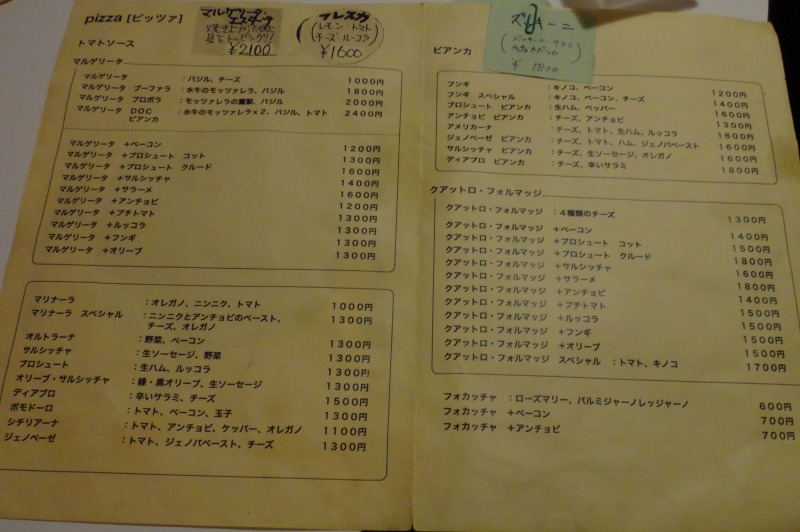 pizza [ピッツァ]
マルゲリータ・
エスターテ
¥2100
フレスカ
(レモン・トマト
チーズ・ルーコラ)
¥1600
トマトソース
マルゲリータ
マルゲリータ ：バジル、チーズ 1000円
マルゲリータ ブーファラ ：水牛のモッツァレラ、バジル 1800円
マルゲリータ プロボラ ：モッツァレラの燻製、バジル 2000円
マルゲリータ DOC ：水牛のモッツァレラx2、バジル、トマト 2400円
ビアンカ
マルゲリータ ＋ベーコン 1200円
マルゲリータ ＋プロシュート コット 1300円
マルゲリータ ＋プロシュート クルード 1600円
マルゲリータ ＋サルシッチャ 1400円
マルゲリータ ＋サラーメ 1600円
マルゲリータ ＋アンチョビ 1200円
マルゲリータ ＋プチトマト 1300円
マルゲリータ ＋ルッコラ 1300円
マルゲリータ ＋フンギ 1300円
マルゲリータ ＋オリーブ 1300円
マリナーラ ：オレガノ、ニンニク、トマト 1000円
マリナーラ スペシャル ：ニンニクとアンチョビのペースト、 1300円
チーズ、オレガノ
オルトラーナ ：野菜、ベーコン 1300円
サルシッチャ ：生ソーセージ、野菜 1300円
プロシュート ：生ハム、ルッコラ 1300円
オリーブ・サルシッチャ ：緑・黒オリーブ、生ソーセージ 1300円
ディアブロ ：辛いサラミ、チーズ 1500円
ポモドーロ ：トマト、ベーコン、玉子 1300円
シチリアーナ ：トマト、アンチョビ、ケッパー、オレガノ 1100円
ジェノベーゼ ：トマト、ジェノバペースト、チーズ 1300円
¥1800
ビアンカ
フンギ ：キノコ、ベーコン 1200円
フンギ スペシャル ：キノコ、ベーコン、チーズ 1400円
プロシュート ビアンカ ：生ハム、ペッパー 1600円
アンチョビ ビアンカ ：チーズ、アンチョビ 1300円
アメリカーナ ：チーズ、トマト、生ハム、ルッコラ 1600円
ジェノベーゼ ビアンカ ：チーズ、トマト、ハム、ジェノバペースト 1600円
サルシッチャ ビアンカ ：チーズ、生ソーセージ、オレガノ 1600円
ディアブロ ビアンカ ：チーズ、辛いサラミ 1800円
クアットロ・フォルマッジ
クアットロ・フォルマッジ ：4種類のチーズ 1300円
クアットロ・フォルマッジ ＋ベーコン 1400円
クアットロ・フォルマッジ ＋プロシュート コット 1500円
クアットロ・フォルマッジ ＋プロシュート クルード 1800円
クアットロ・フォルマッジ ＋サルシッチャ 1600円
クアットロ・フォルマッジ ＋サラーメ 1800円
クアットロ・フォルマッジ ＋アンチョビ 1400円
クアットロ・フォルマッジ ＋プチトマト 1500円
クアットロ・フォルマッジ ＋ルッコラ 1500円
クアットロ・フォルマッジ ＋フンギ 1500円
クアットロ・フォルマッジ ＋オリーブ 1500円
クアットロ・フォルマッジ スペシャル ：トマト、キノコ 1700円
フォカッチャ ：ローズマリー、パルミジャーノレッジャーノ 600円
フォカッチャ ＋ベーコン 700円
フォカッチャ ＋アンチョビ 700円